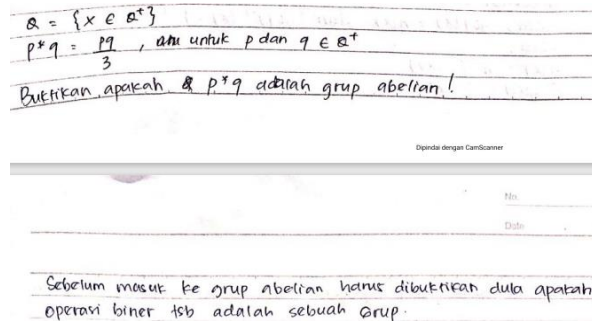 Q = {x ∈ Q⁺}
p*q = pq/3 , untuk p dan q ∈ Q⁺
Buktikan apakah p*q adalah grup abelian!
Dipindai dengan CamScanner
No.
Date
Sebelum masuk ke grup abelian harus dibuktikan dulu apakah
operasi biner tsb adalah sebuah Grup.